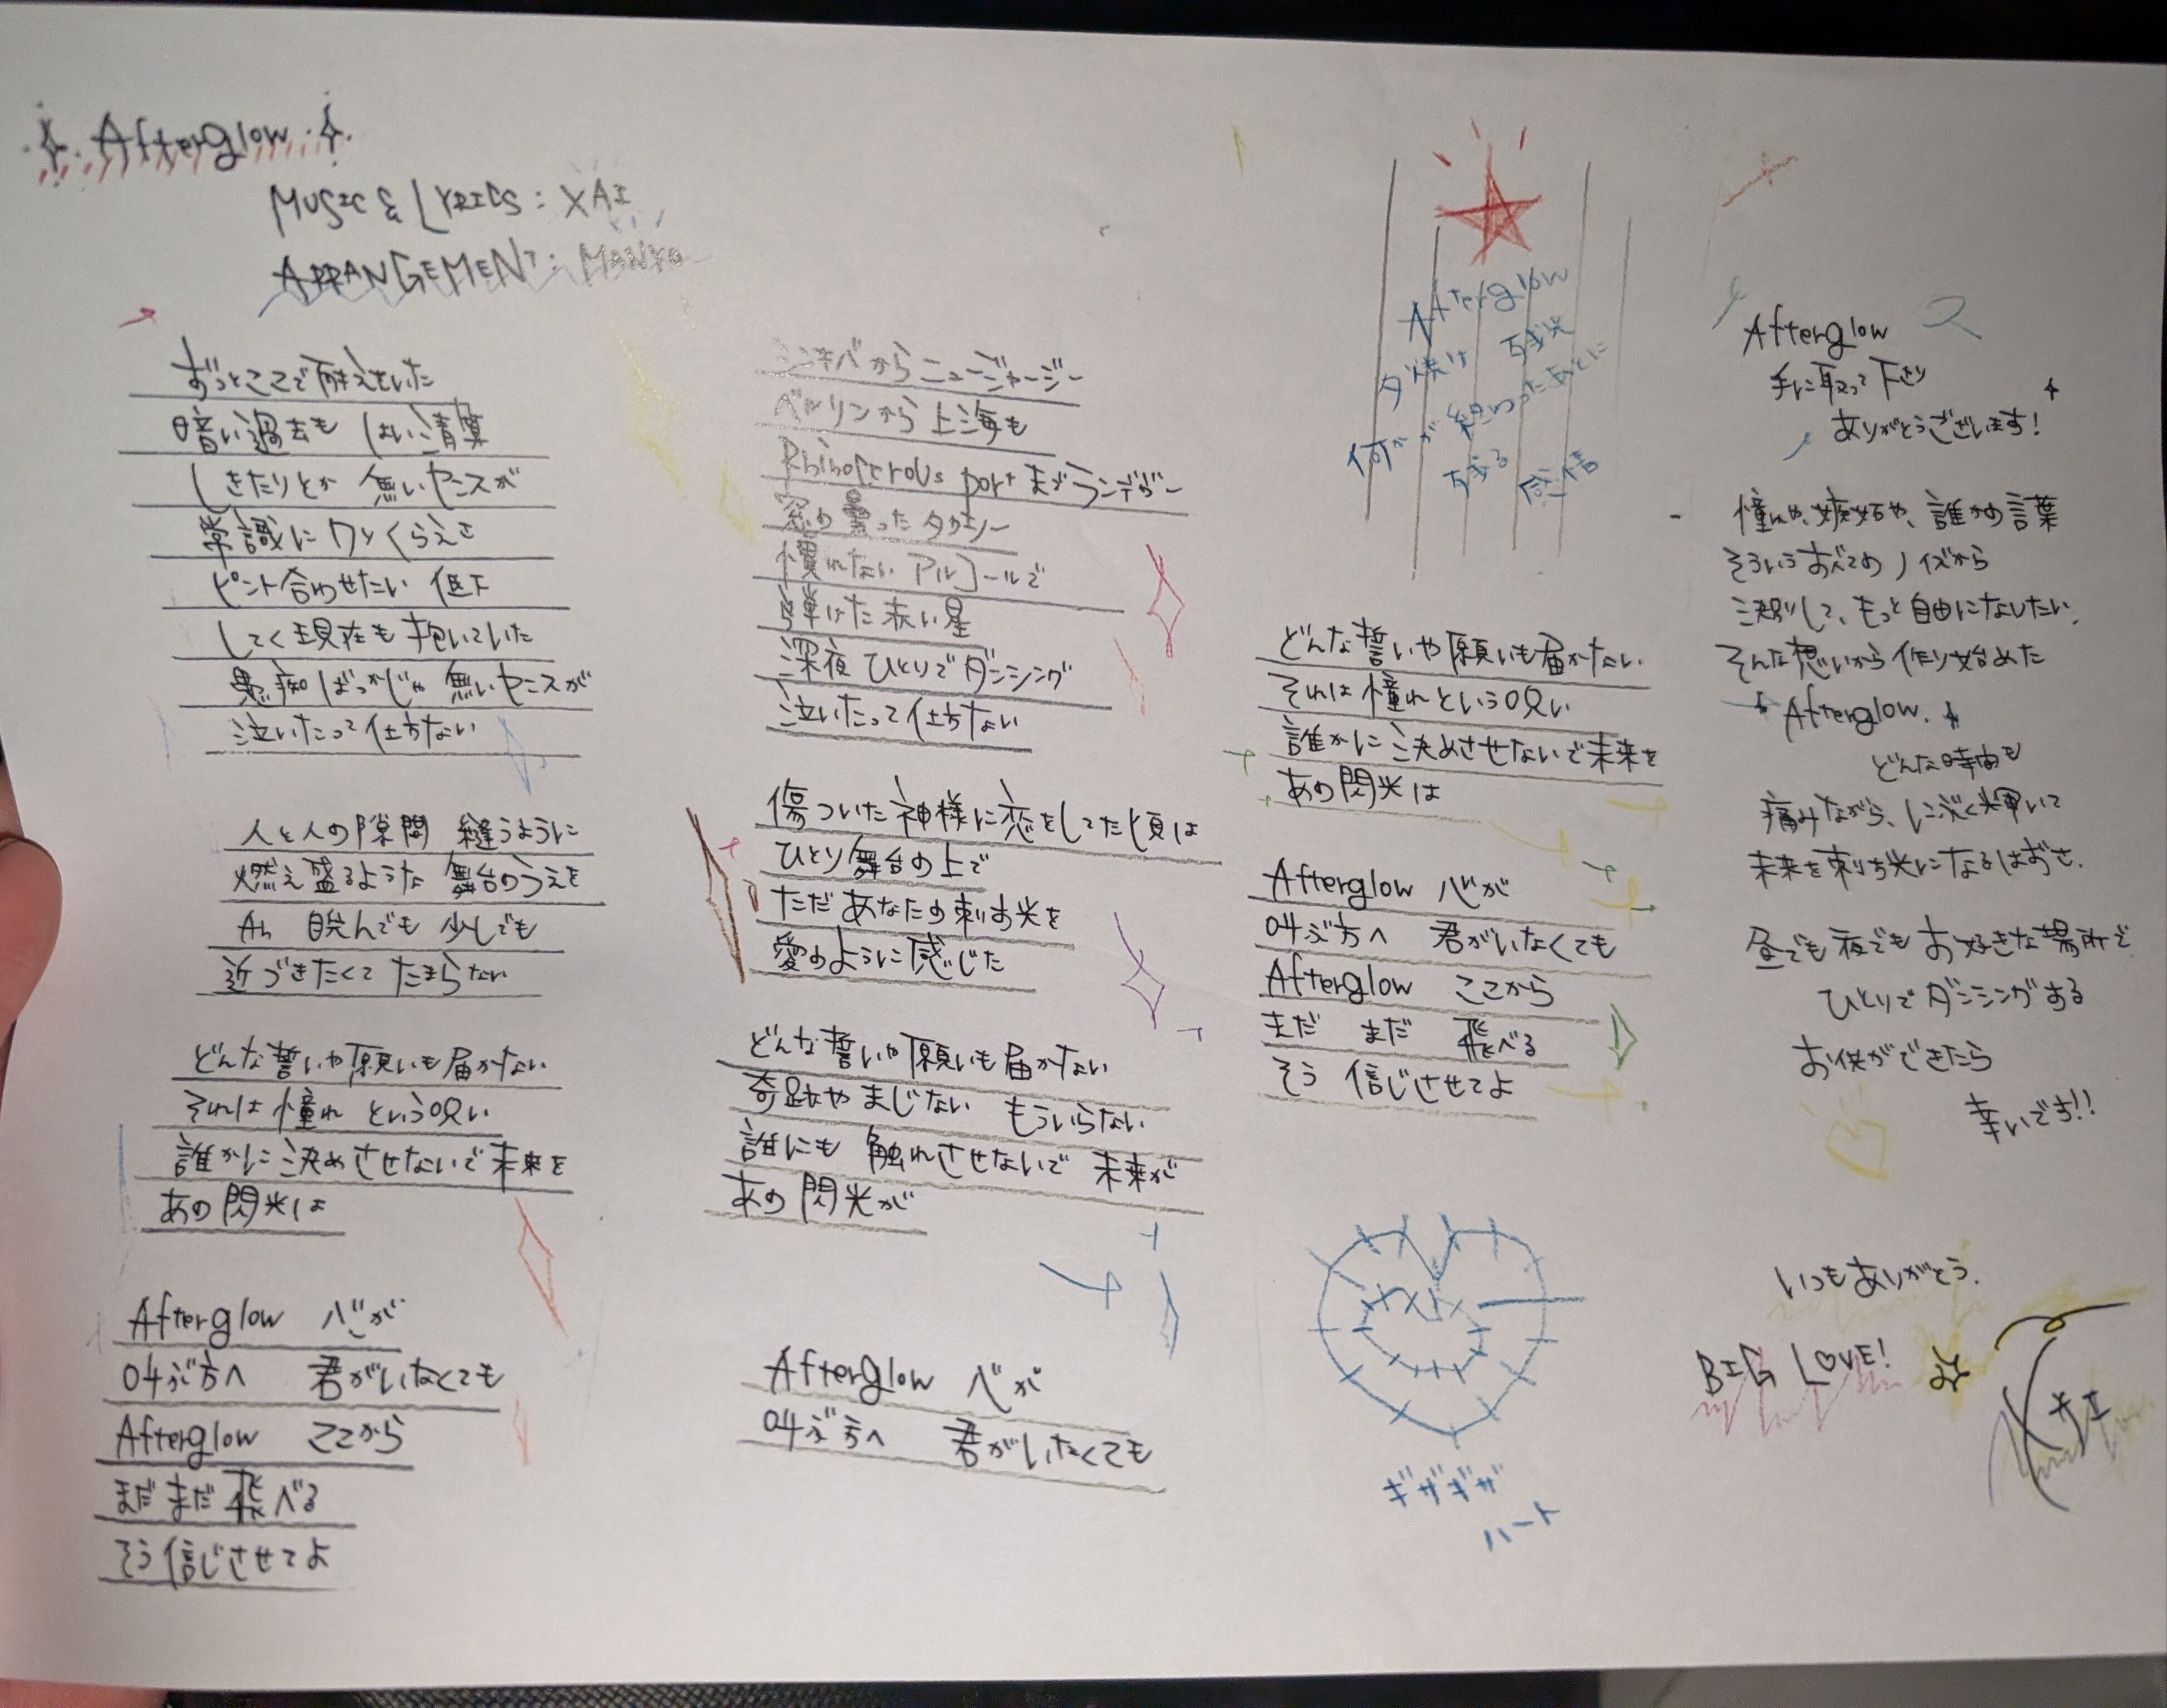 Afterglow
MUSIC & LYRICS : XAI
ARRANGEMENT : MANYO
ずっとここで耐えていた
暗い過去も はい清算
しきたりとか 無いセンスが
常識に ワッ くらえさ
ピント合わせたい 低下
してく現在も 抱いていた
愚痴ばっかじゃ 無いセンスが
泣いたって仕方ない
人と人の隙間 縫うように
燃え盛るような 舞台のうえを
Ah 眺んでも 少しでも
近づきたくて たまらない
どんな誓いや願いも届かない
それは憧れ という呪い
誰かに決めさせないで未来を
あの閃光は
Afterglow 心が
叫ぶ方へ 君がいなくても
Afterglow ここから
まだまだ飛べる
そう信じさせてよ
シンキバからニュージャージー
ベルリンから上海も
Rhinocerous portまでランデヴー
窓の曇ったタクシー
慣れないアルコールで
弾けた赤い星
深夜 ひとりでダンシング
泣いたって仕方ない
傷ついた神様に恋をしてた頃は
ひとり舞台の上で
ただ あなたの刺す光を
愛のように感じた
どんな誓いや願いも届かない
奇跡やまじない もういらない
誰にも 触れさせないで 未来が
あの閃光が
Afterglow 心が
叫ぶ方へ 君がいなくても
Afterglow
夕焼け 残光
何かが終わったあとに
残る 感情
どんな誓いや願いも届かない
それは憧れという呪い
誰かに決めさせないで未来を
あの閃光は
Afterglow 心が
叫ぶ方へ 君がいなくても
Afterglow ここから
まだ まだ 飛べる
そう 信じさせてよ
ギザギザ
ハート
Afterglow
手に取って下さり
ありがとうございます!
憧れや、嫉妬や、誰かの言葉
そういうすべてのノイズから
決別して、もっと自由になりたい。
そんな想いから作り始めた
Afterglow.
どんな時間も
痛みながら、にぶく輝いて
未来を刺す光になるはずさ。
昼でも夜でもお好きな場所で
ひとりでダンシングする
お供ができたら
幸いです!!
いつもありがとう。
BIG LOVE!